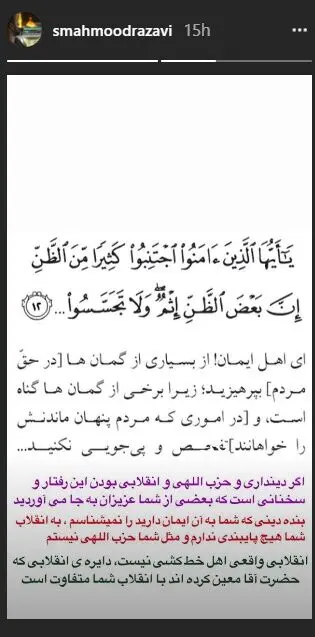 smahmoodrazavi 15h
يَٰٓأَيُّهَا ٱلَّذِينَ ءَامَنُوا۟ ٱجْتَنِبُوا۟ كَثِيرًا مِّنَ ٱلظَّنِّ
إِنَّ بَعْضَ ٱلظَّنِّ إِثْمٌ ۖ وَلَا تَجَسَّسُوا۟ ... ١٢
ای اهل ایمان! از بسیاری از گمان ها [در حقّ
مردم] بپرهیزید؛ زیرا برخی از گمان ها گناه
است، و [در اموری که مردم پنهان ماندنش
را خواهانند] تفحص و پی‌جویی نکنید...
اگر دینداری و حزب اللهی و انقلابی بودن این رفتار و
سخنانی است که بعضی از شما عزیزان به جا می آوردید
بنده دینی که شما به آن ایمان دارید را نمیشناسم ، به انقلاب
شما هیچ پایبندی ندارم و مثل شما حزب اللهی نیستم
انقلابی واقعی اهل خط کشی نیست، دایره ی انقلابی که
حضرت آقا معین کرده اند با انقلاب شما متفاوت است